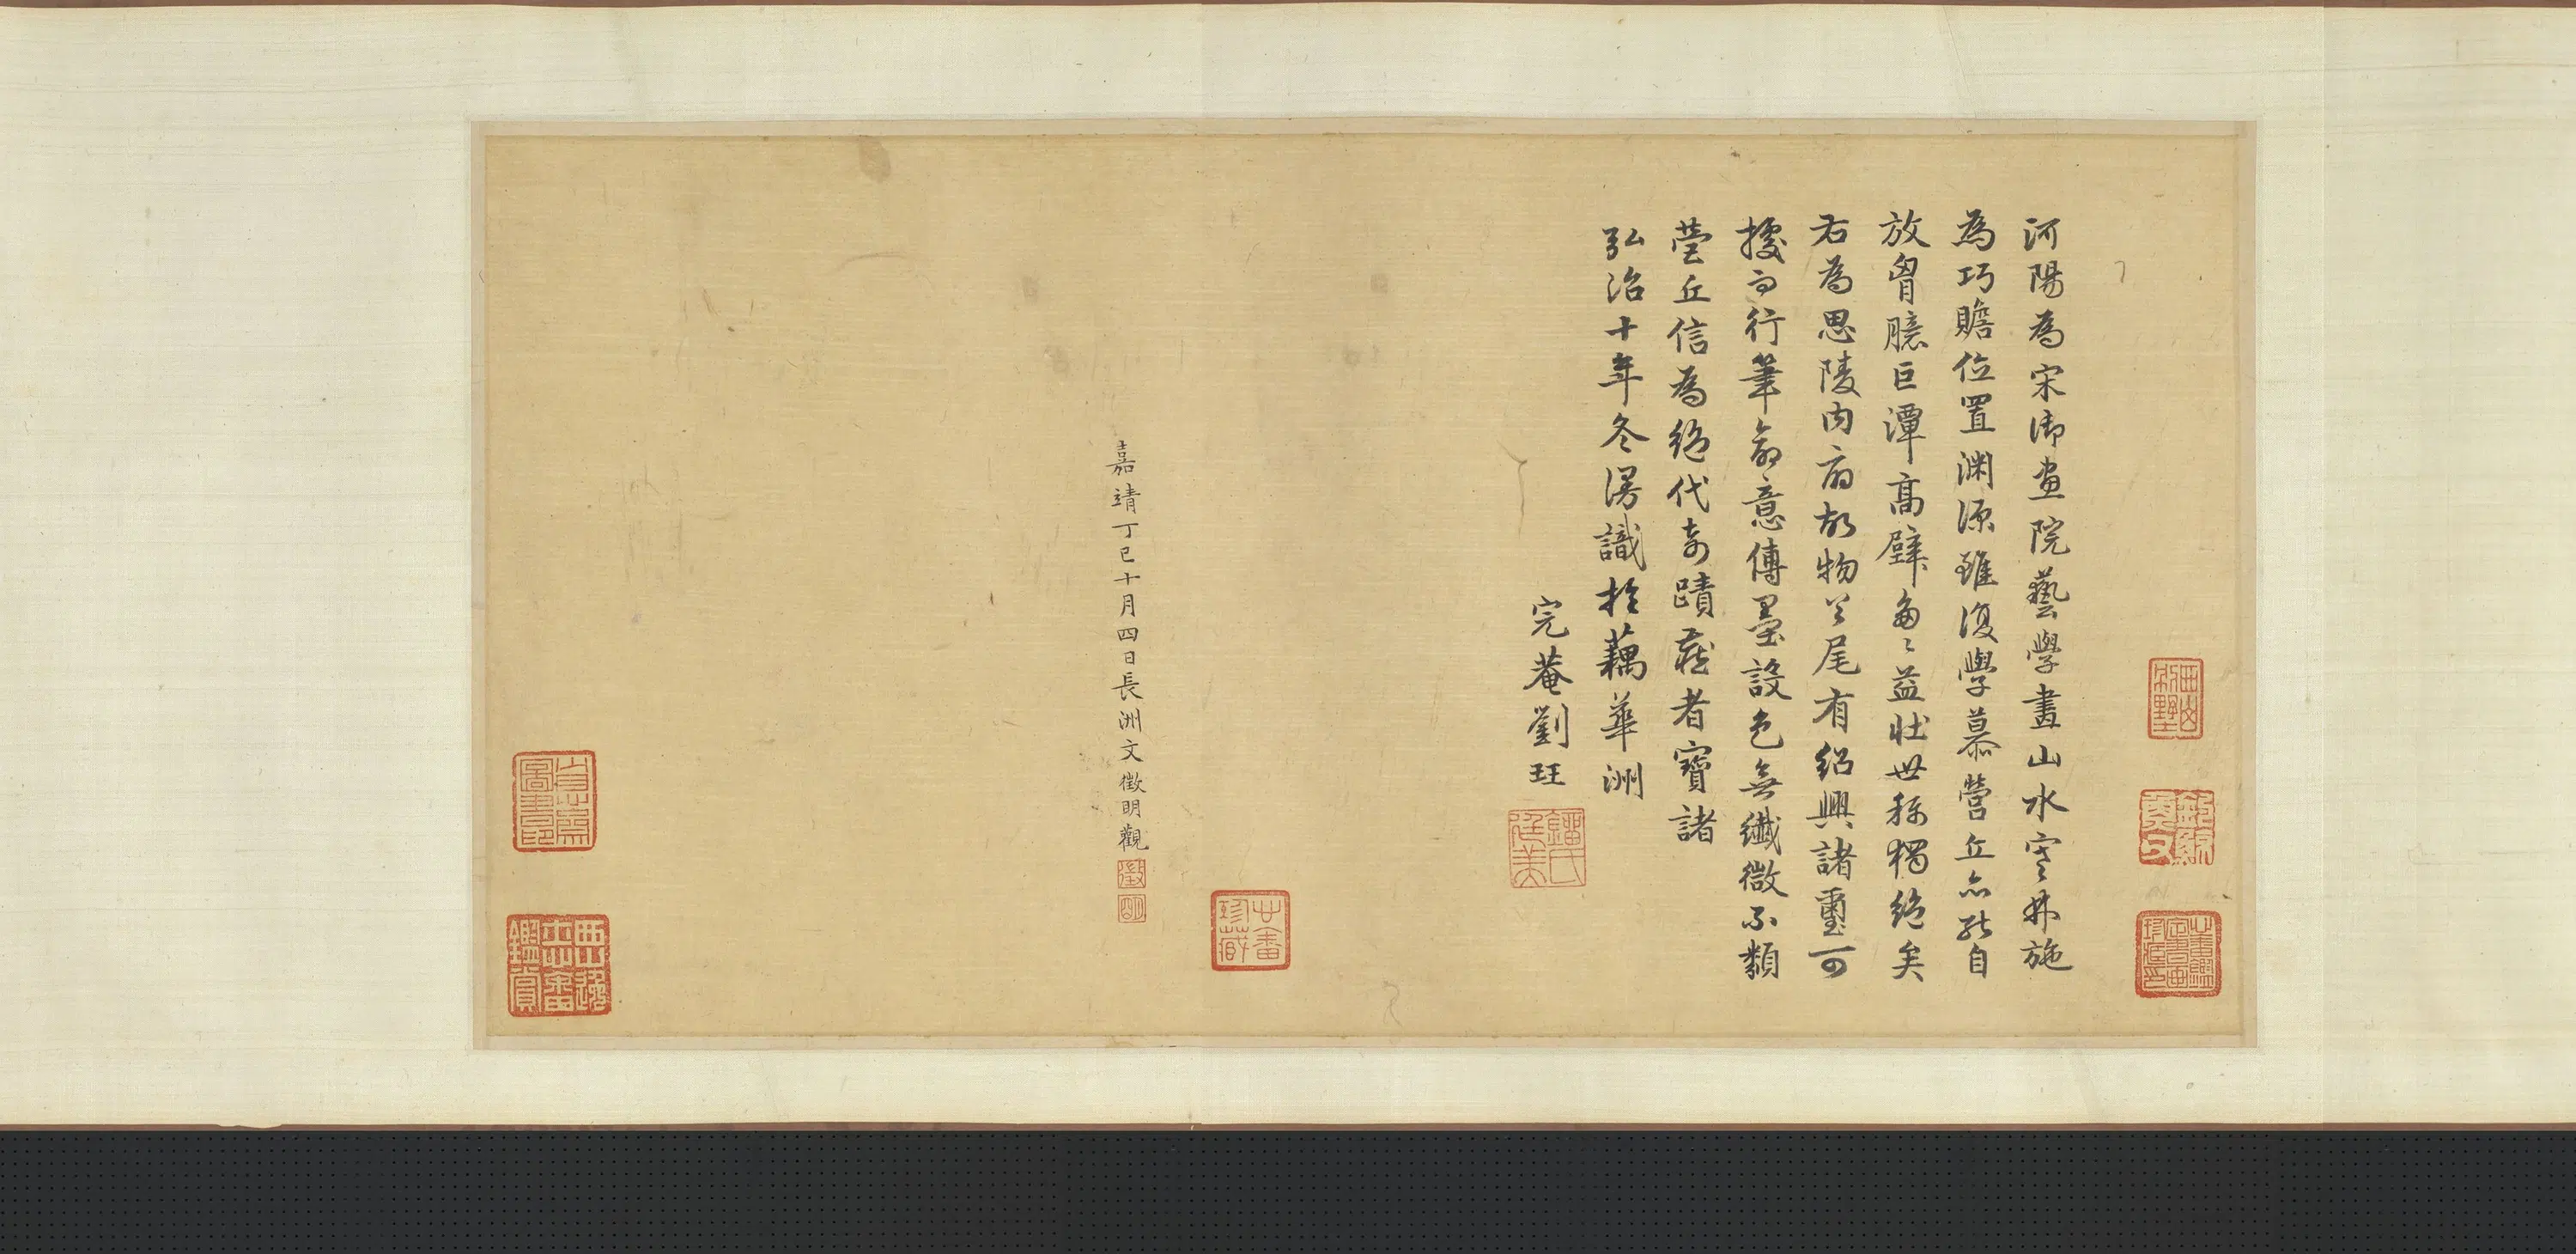 河陽為宋御畫院藝學畫山水寒林施
為巧贍位置淵源雖復學慕營丘亦能自
放胷臆巨潭高壁多〻益壯世稱獨絕矣
右為思陵內府故物首尾有紹興諸璽可
據而行筆命意傅墨設色無纖微不類
營丘信為絕代奇蹟藏者寶諸
弘治十年冬漫識於藕華洲
完菴劉珏
嘉靖丁巳十月四日長洲文徵明觀
徵
明